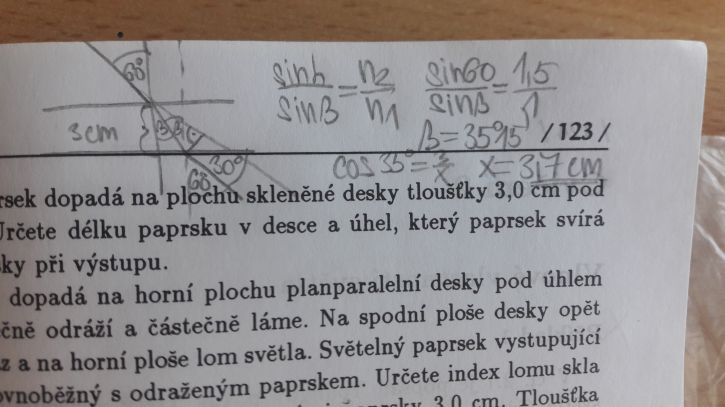 60°
sin h / sin β = n2 / n1
sin 60 / sin β = 1,5 / 1
3cm
β = 35°15' /123/
30°
cos 35° = 3/x x = 3,7 cm
60
rsek dopadá na plochu skleněné desky tloušťky 3,0 cm pod
Určete délku paprsku v desce a úhel, který paprsek svírá
ky při výstupu.
dopadá na horní plochu planparalelní desky pod úhlem
ečně odráží a částečně láme. Na spodní ploše desky opět
z a na horní ploše lom světla. Světelný paprsek vystupující
ovnoběžný s odraženým paprskem. Určete index lomu skla
paprsky 3,0 cm. Tloušťka